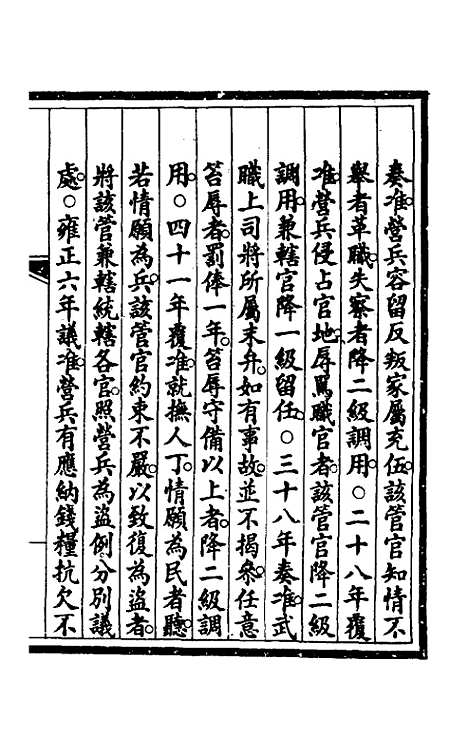 奏准。營兵容留反叛家屬充伍。該管官知情不
舉者革職。失察者降二級調用。○二十八年覆
准。營兵侵占官地。辱罵職官者。該管官降二級
調用。兼轄官降一級留任。○三十八年奏准。武
職上司將所屬末弁。如有事故。並不揭參。任意
笞辱者。罰俸一年。笞辱守備以上者。降二級調
用。○四十一年覆准。就撫人丁。情願為民者聽。
若情願為兵。該管官約束不嚴。以致復為盜者。
將該管兼轄統轄各官。照營兵為盜例。分別議
處。○雍正六年議准。營兵有應納錢糧抗欠不